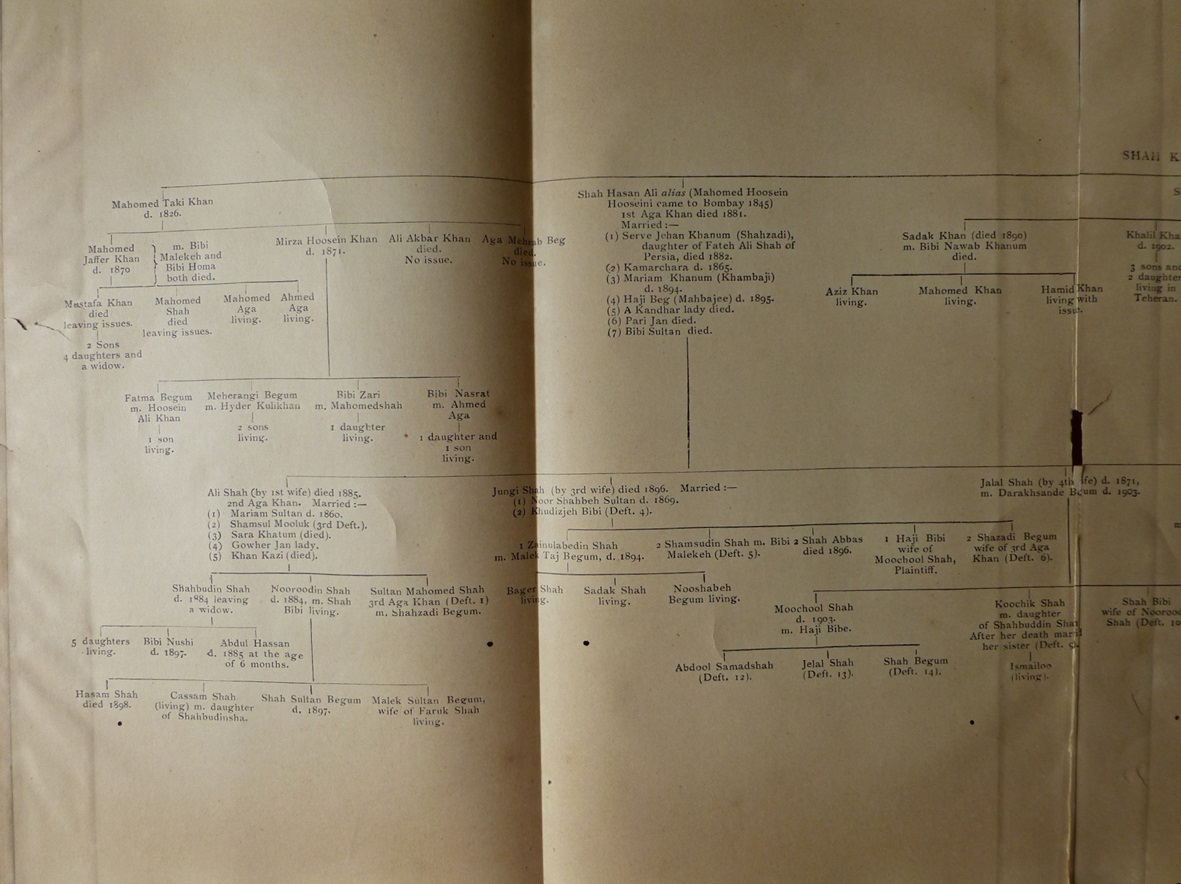 SHAH K
Mahomed Taki Khan
d. 1826.
Shah Hasan Ali alias (Mahomed Hoosein
Hooseini came to Bombay 1845)
1st Aga Khan died 1881.
Married :—
(1) Serve Jehan Khanum (Shahzadi),
daughter of Fateh Ali Shah of
Persia, died 1882.
(2) Kamarchara d. 1865.
(3) Mariam Khanum (Khambaji)
d. 1894.
(4) Haji Beg (Mahbajee) d. 1895.
(5) A Kandhar lady died.
(6) Pari Jan died.
(7) Bibi Sultan died.
S
Mahomed
Jaffer Khan
d. 1870
m. Bibi
Malekeh and
Bibi Homa
both died.
Mirza Hoosein Khan
d. 1871.
Ali Akbar Khan
died.
No issue.
Aga Mehrab Beg
died.
No issue.
Sadak Khan (died 1890)
m. Bibi Nawab Khanum
died.
Khalil Kha
d. 1902.
5 sons and
2 daughte
living in
Teheran.
Mustafa Khan
died
leaving issues.
2 Sons
4 daughters and
a widow.
Mahomed
Shah
died
leaving issues.
Mahomed
Aga
living.
Ahmed
Aga
living.
Aziz Khan
living.
Mahomed Khan
living.
Hamid Khan
living with
issue.
Fatma Begum
m. Hoosein
Ali Khan
1 son
living.
Meherangi Begum
m. Hyder Kulikhan
2 sons
living.
Bibi Zari
m. Mahomedshah
1 daughter
living.
Bibi Nasrat
m. Ahmed
Aga
1 daughter and
1 son
living.
Ali Shah (by 1st wife) died 1885.
2nd Aga Khan. Married :—
(1) Mariam Sultan d. 1860.
(2) Shamsul Mooluk (3rd Deft.).
(3) Sara Khatum (died).
(4) Gowher Jan lady.
(5) Khan Kazi (died).
Jungi Shah (by 3rd wife) died 1896. Married :—
(1) Noor Shahbeh Sultan d. 1869.
(2) Khudizjeh Bibi (Deft. 4).
Jalal Shah (by 4th wife) d. 1871,
m. Darakhsande Begum d. 1903.
1 Zainulabedin Shah
m. Malek Taj Begum, d. 1894.
2 Shamsudin Shah m. Bibi
Malekeh (Deft. 5).
2 Shah Abbas
died 1896.
1 Haji Bibi
wife of
Moochool Shah,
Plaintiff.
2 Shazadi Begum
wife of 3rd Aga
Khan (Deft. 6).
Shahbudin Shah
d. 1884 leaving
a widow.
Nooroodin Shah
d. 1884, m. Shah
Bibi living.
Sultan Mahomed Shah
3rd Aga Khan (Deft. 1)
m. Shahzadi Begum.
Bager Shah
living.
Sadak Shah
living.
Nooshabeh
Begum living.
Moochool Shah
d. 1903.
m. Haji Bibe.
Koochik Shah
m. daughter
of Shahbuddin Shah
After her death mar
her sister (Deft.
Ismailoo
(living).
Shah Bibi
wife of Nooroo
Shah (Deft. 10
5 daughters
living.
Bibi Nushi
d. 1897.
Abdul Hassan
d. 1885 at the age
of 6 months.
Abdool Samadshah
(Deft. 12).
Jelal Shah
(Deft. 13).
Shah Begum
(Deft. 14).
Hasam Shah
died 1898.
Cassam Shah
(living) m. daughter
of Shahbudinsha.
Shah Sultan Begum
d. 1897.
Malek Sultan Begum,
wife of Faruk Shah
living.